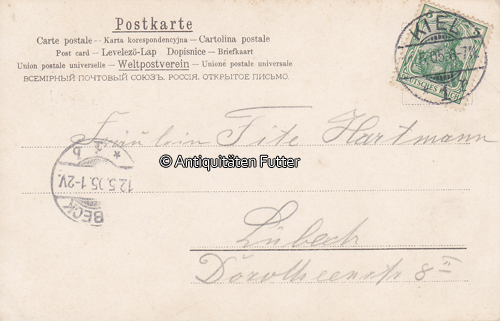 Postkarte
Carte postale — Karta korespondencyjna — Cartolina postale
Post card — Levelező-Lap Dopisnice — Briefkaart
Union postale universelle — Weltpostverein — Unione postale universale
ВСЕМІРНЫЙ ПОЧТОВЫЙ СОЮЗЪ. РОССІЯ. ОТКРЫТОЕ ПИСЬМО.
KIEL
DEUTSCHES REICH
1
Fräulein Tite Hartmann
© Antiquitäten Futter
* 1. b
12.5.05.1-2V.
BECK
Lübeck
Dorotheenstr 8 II